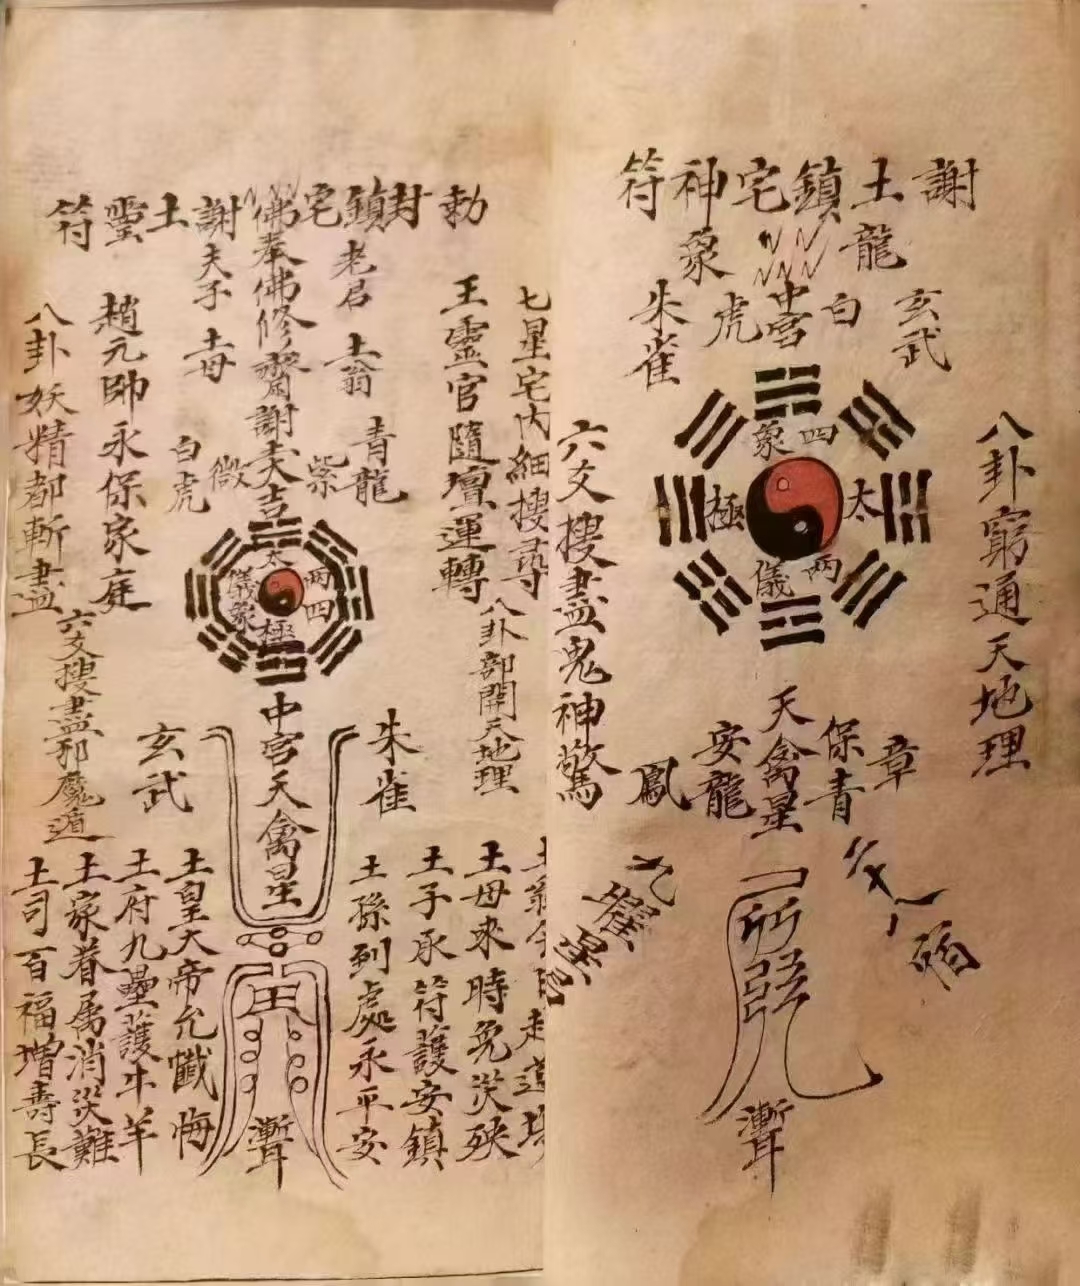 謝土鎮宅神符
玄武
龍
白
中宮
虎
象
朱雀
八卦窮通天地理
四象
太極
兩儀
六爻搜盡鬼神驚
天禽星
保
青
章
安
龍
鳳
聻
勅封鎮宅
謝土靈符
七星宅内細搜尋
八卦部開天地理
王靈官隨壇運轉
老君
土翁
青龍
佛奉佛修齋謝夫吉
紫微
夫子
土母
白虎
趙元帥永保家庭
八卦妖精都斬盡
六爻搜盡邪魔遁
太極
兩儀
四象
朱雀
中宮天禽星
玄武
土母來時免災殃
土子承符護安鎮
土孫到處永平安
聻
土皇大帝允懺悔
土府九壘護牛羊
土家眷属消災難
土司百福增壽長